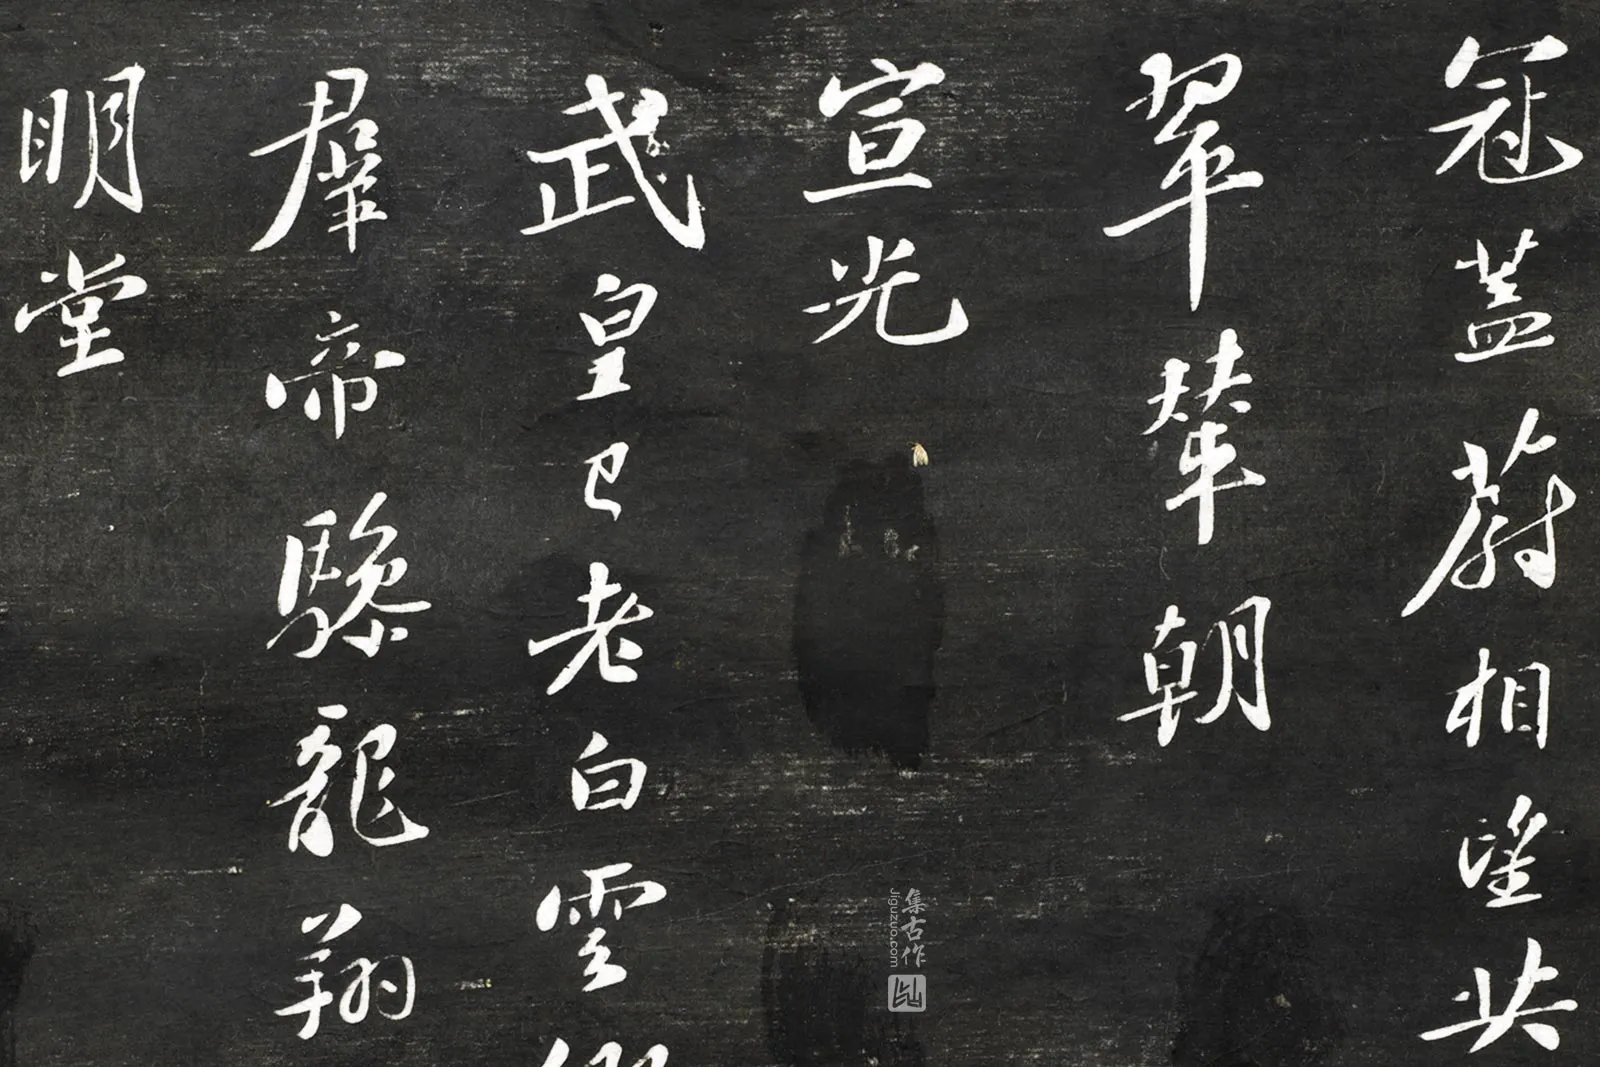 冠蓋蔚相望共
翠華輦朝
宣光
武皇已老白雲鄉
羣帝驂龍翔
明堂
集古作
Jiguzuo.com